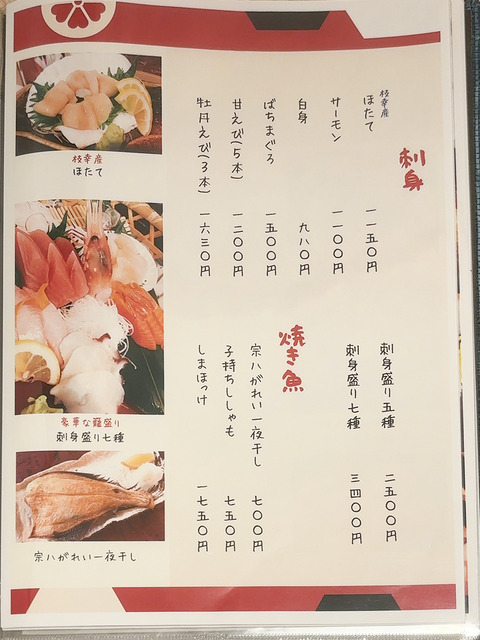 刺身
枝幸産
ほたて 一一五〇円
サーモン 一一〇〇円
白身 九八〇円
ばちまぐろ 一五〇〇円
甘えび(5本) 一二〇〇円
牡丹えび(3本) 一六三〇円
刺身盛り五種 二五〇〇円
刺身盛り七種 三四〇〇円
焼き魚
宗八がれい一夜干し 七〇〇円
子持ちししゃも 七五〇円
しまほっけ 一七五〇円
枝幸産
ほたて
豪華な籠盛り
刺身盛り七種
宗八がれい一夜干し